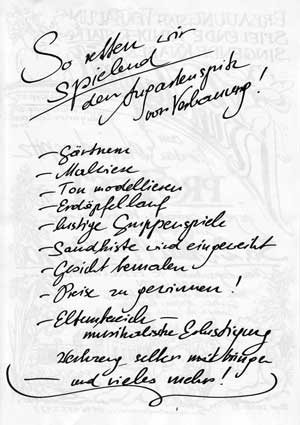 So retten wir
spielend
den Augartenspitz
vor Verbauung!
– Gärtnern
– Malkisen
– Ton modellieren
– Erdäpfellauf
– lustige Gruppenspiele
– Sandkiste wird eingeweiht
– Gesicht bemalen
– Preise zu gewinnen!
– Elternbereich –
musikalische Belustigung
Werkzeug selber mitbringen
– und vieles mehr!